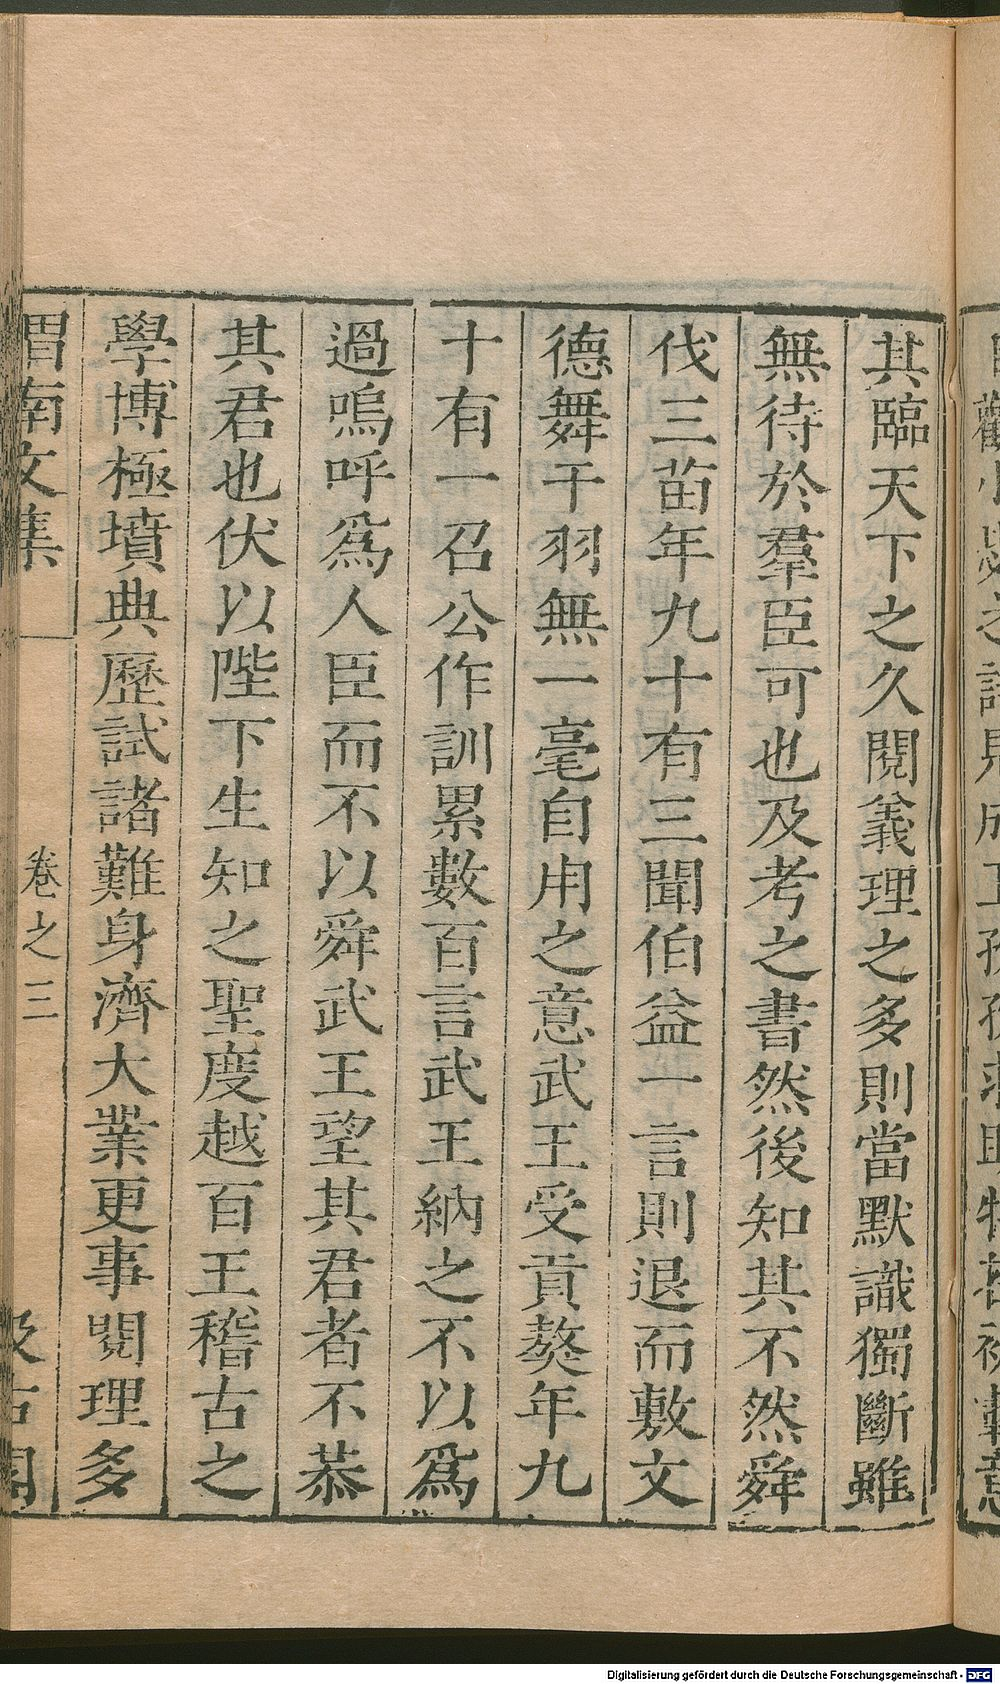 其臨天下之久閱義理之多則當默識獨斷雖
無待於羣臣可也及考之書然後知其不然舜
伐三苗年九十有三聞伯益一言則退而敷文
德舞干羽無一毫自用之意武王受貢獒年九
十有一召公作訓累數百言武王納之不以爲
過嗚呼爲人臣而不以舜武王望其君者不恭
其君也伏以陛下生知之聖度越百王稽古之
學博極墳典歷試諸難身濟大業更事閱理多
渭南文集 卷之三 汲古閣
Digitalisierung gefördert durch die Deutsche Forschungsgemeinschaft - DFG